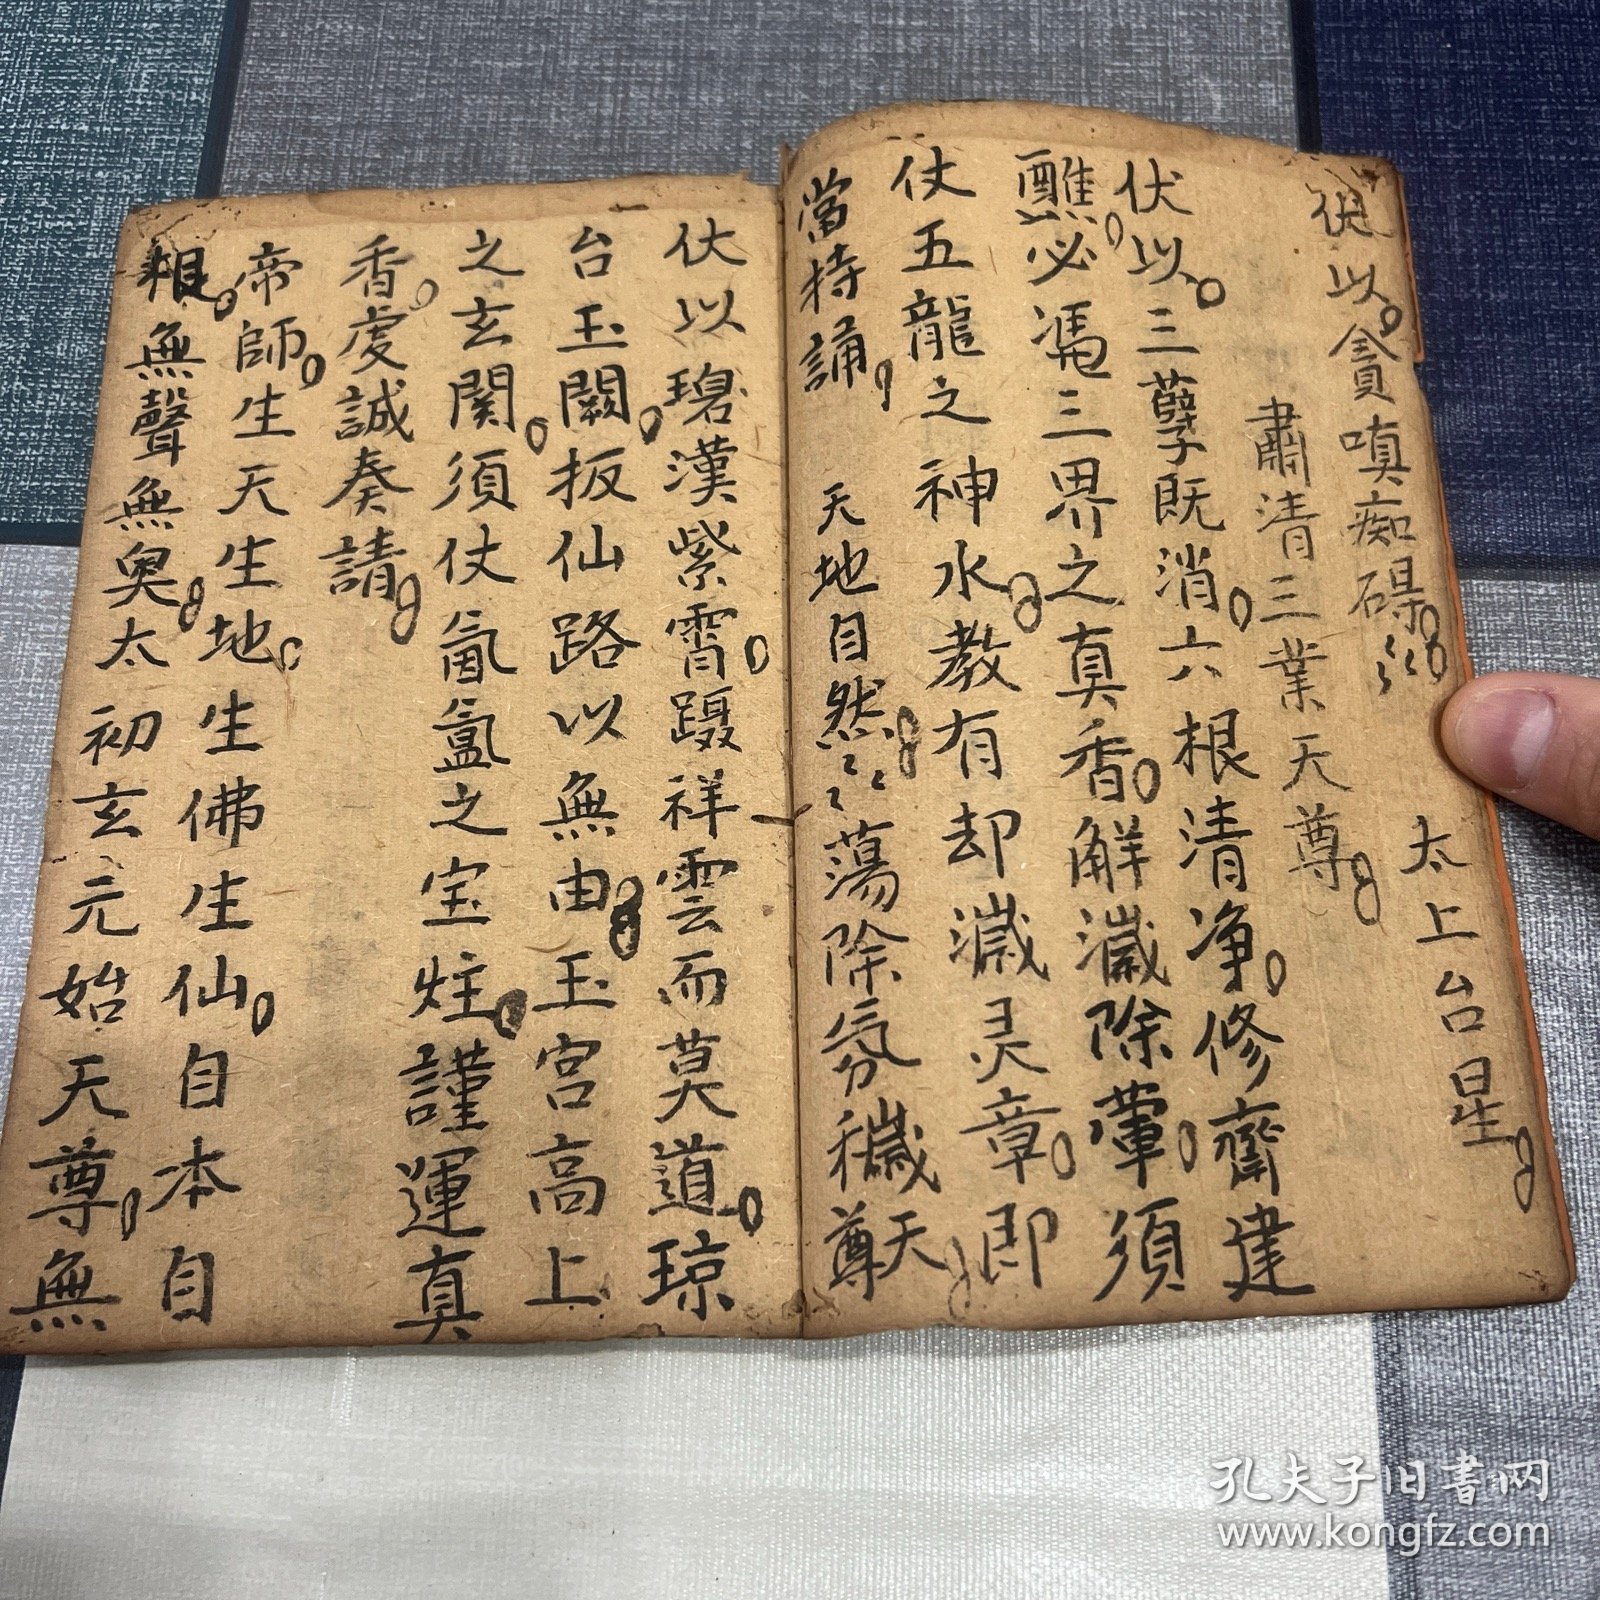 從以貪嗔痴碍 太上台星
肅清三業天尊
伏以三孽既消六根清净修齋建
醮必馮三界之真香解濊除葷須
仗五龍之神水教有却濊灵章即
當持誦 天地自然 蕩除氛穢天尊
伏以碧漢紫霄躡祥雲而莫道琼
台玉闕扳仙路以無由玉宮高上
之玄関須仗氤氳之宝炷謹運真
香虔誠奏請
帝師生天生地生佛生仙自本自
根無聲無臭太初玄元始天尊無
孔夫子旧书网
www.kongfz.com